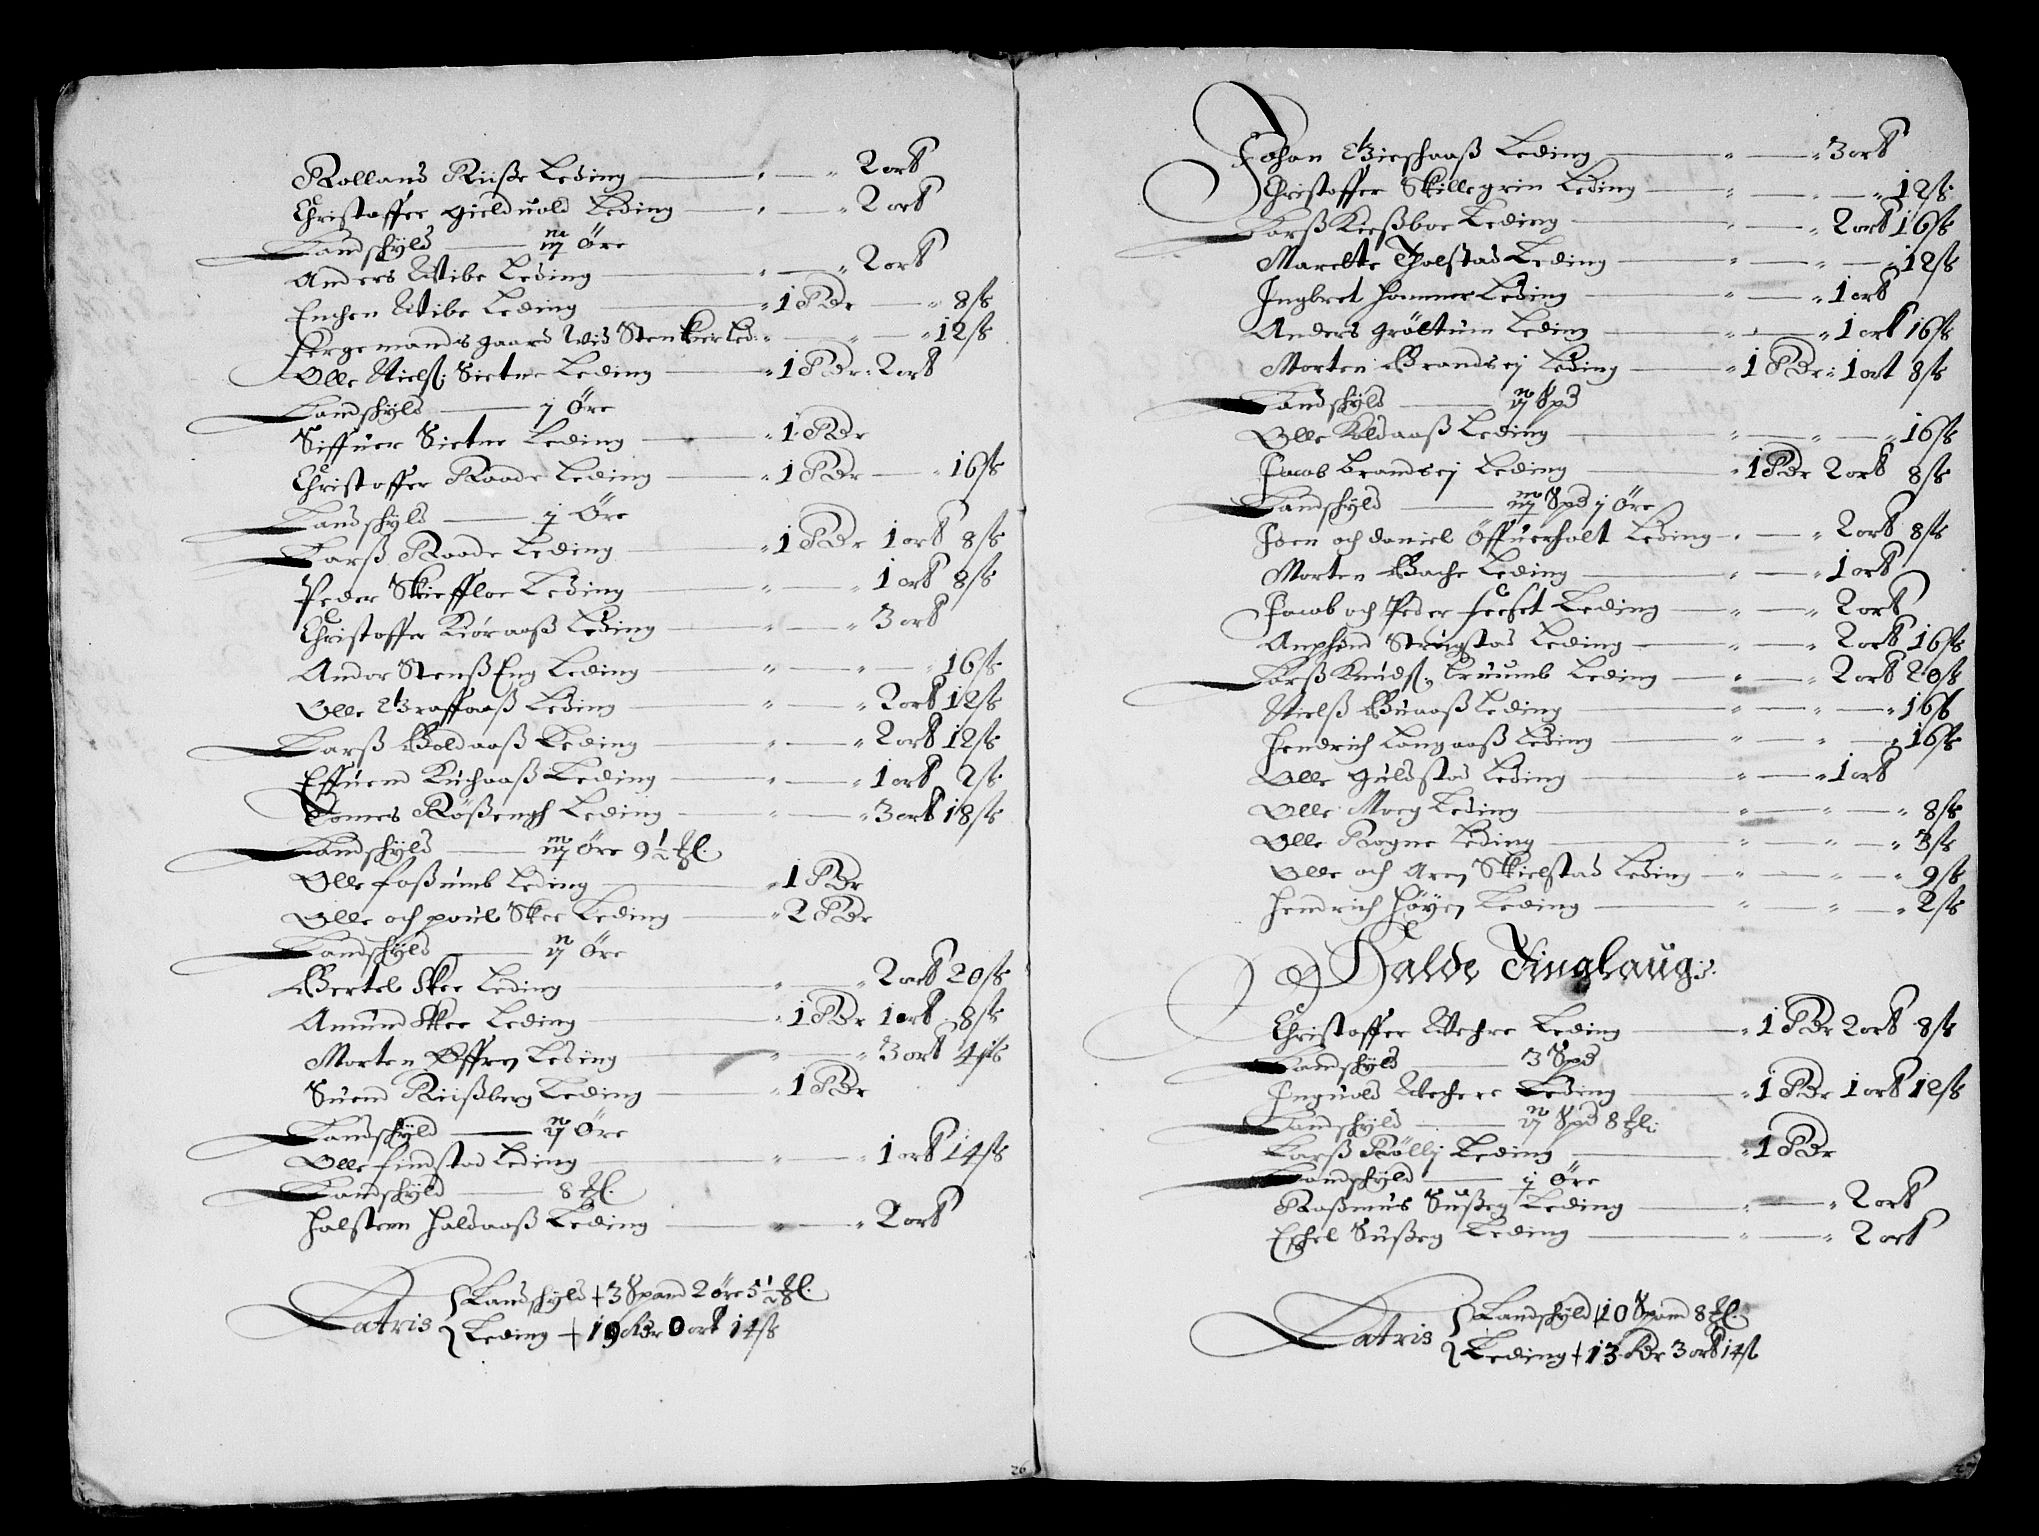 Rolland Riiße Leding — " — " 2 ort
Christoffer Gielduold Leding — " — " 2 ort
Landschyld — iij Øre
Anders Wibe Leding — " — " 2 ort
Enchen Wibe Leding — " 1 Rdr — " 8 ß
Borgemands gaard wid Stenkier Led: " — " — " 12 ß
Olle Nielß: Sietne Leding — " 1 Rdr: 2 ort
Landschyld — j Øre
Siffuer Sietne Leding — " 1 Rdr
Christoffer Raade Leding — " 1 Rdr — " 16 ß
Landschyld — j Øre
Larß Raade Leding — " 1 Rdr 1 ort 8 ß
Peder Skieffloe Leding — " — " 1 ort 8 ß
Christoffer Kiøraaß Leding — " — " 3 ort
Andor Stenß Eng Leding — " — " — " 16 ß
Olle Graffaaß Leding — " — " 2 ort 12 ß
Larß Boldaaß Leding — " — " 2 ort 12 ß
Effuend Kuchaaß Leding — " — " 1 ort 2 ß
Tomes Røßengh Leding — " — " 3 ort 18 ß
Landschyld — iij Øre 9½ ℔l.
Olle Foßumb Leding — " 1 Rdr
Olle och poul Skee Leding — " 2 Rdr
Landschyld — ij Øre
Bertel Skee Leding — " — " 2 ort 20 ß
Amund Skee Leding — " 1 Rdr 1 ort 8 ß
Morten Øffrej Leding — " — " 3 ort 4 ß
Suend Riißberg Leding — " 1 Rdr
Landschyld — ij Øre
Olle Findstad Leding — " — " 1 ort 14 ß
Landschyld — 8 ℔l.
Halsteen Haldaaß Leding — " — " 2 ort
Latris { Landschyld + 3 Spand 2 øre 5½ ℔l.
{ Leding + 19 Rdr 0 ort 14 ß
26
Johan Leding — " — " 3 ort
Christoffer Skillegrin Leding — " — " — " 12 ß
Larß Keeßboe Leding — " — " 2 ort 16 ß
Marette Tholstad Leding — " — " — " 12 ß
Ingbret Hammer Leding — " — " 1 ort
Anders Grøltum Leding — " — " 1 ort 16 ß
Morten Brandsej Leding — " 1 Rdr: 1 ort 8 ß
Landschyld — ij Spd
Olle Koldaaß Leding — " — " — " 16 ß
Jacob brandsej Leding — " 1 Rdr 2 ort 8 ß
Landschyld — iij Spd j Øre
Joen och daniel Øffuerholt Leding — " — " 2 ort 8 ß
Morten Bache Leding — " — " 1 ort
Jacob och Peder feeset Leding — " — " 2 ort
Amphend Strugstad Leding — " — " 2 ort 16 ß
Larß Knudß: Bruumb Leding — " — " 2 ort 20 ß
Nielß Buaaß Leding — " — " — " 16 ß
Hendrich Langaaß Leding — " — " — " 16 ß
Olle Guldstad Leding — " — " 1 ort
Olle Moeg Leding — " — " — " 8 ß
Olle Rogne Leding — " — " — " 3 ß
Olle och Arej Skielstad Leding — " — " — " 9 ß
Hendrich Høyej Leding — " — " — " 2 ß
Halde Tinglaug:
Christoffer Wechre Leding — " 1 Rdr 2 ort 8 ß
Landschyld — 3 Spd
Inguold Wechere Leding — " 1 Rdr 1 ort 12 ß
Landschyld — ij Spd 8 ℔l:
Larß Røllj Leding — " 1 Rdr
Landschyld — j Øre
Raßmus Sußeg Leding — " — " 2 ort
Eschel Sußeg Leding — " — " 2 ort
Latris { Landschyld + 10 Spand 8 ℔l.
{ Leding + 13 Rdr 3 ort 14 ß